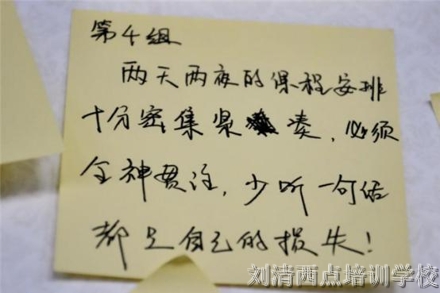 第4组
两天两夜的课程安排
十分密集紧凑，必须
全神贯注，少听一句话
都是自己的损失！
刘清西点培训学校